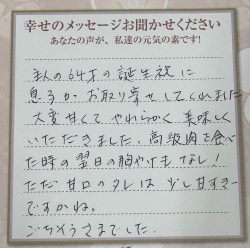 幸せのメッセージお聞かせください
あなたの声が、私達の元気の素です!
主人の64才の誕生祝に
息子がお取り寄せしてくれました
大変甘くて やわらかく 美味しく
いただきました。高級肉を食べ
た時の翌日の胸やけもなし!
ただ甘口のタレは 少し甘すぎ
ですかね。
ごちそうさまでした。